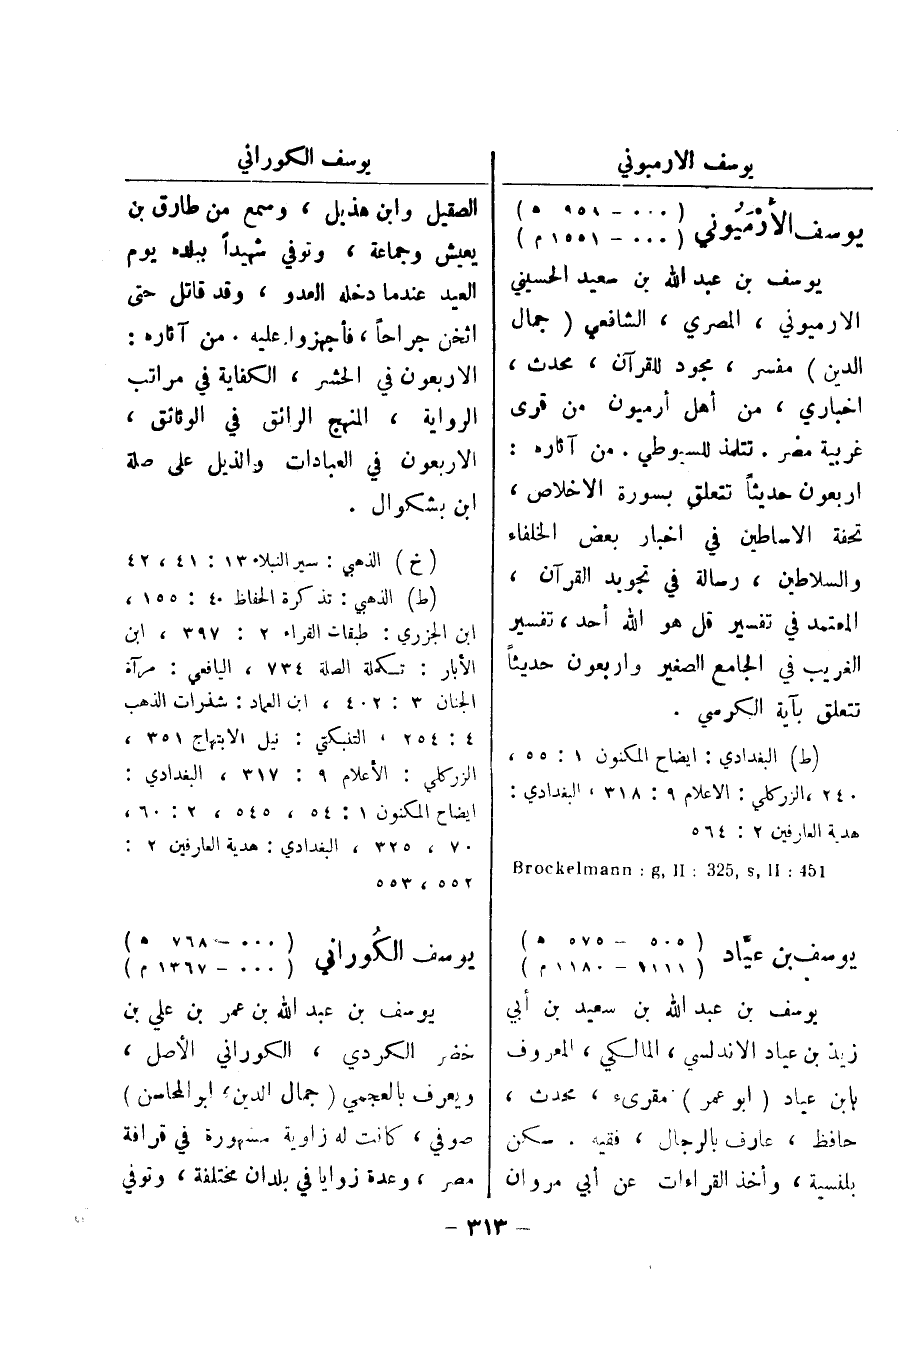 يوسف الارميوني
يوسف الأُرْمَيُوني ( ٠٠٠ - ٩٥١ ه )
( ٠٠٠ - ١٥٥١ م )
يوسف بن عبد الله بن سعيد الحسيني
الارميوني ، المصري ، الشافعي ( جمال
الدين ) مفسر ، مجود للقرآن ، محدث ،
اخباري ، من أهل أرميون من قرى
غربية مصر . تتلمذ للسيوطي . من آثاره :
اربعون حديثاً تتعلق بسورة الاخلاص ،
تحفة الاساطين في اخبار بعض الخلفاء
والسلاطين ، رسالة في تجويد القرآن ،
المعتمد في تفسير قل هو الله أحد ، تفسير
الغريب في الجامع الصغير واربعون حديثاً
تتعلق بآية الكرسي .
(ط) البغدادي : ايضاح المكنون ١ : ٥٥ ،
٢٤٠ ، الزركلي : الاعلام ٩ : ٣١٨ ، البغدادي :
هدية العارفين ٢ : ٥٦٤
Brockelmann : g, II : 325, s, II : 451
يوسف بن عيَّاد ( ٥٠٥ - ٥٧٥ ه )
( ١١١١ - ١١٨٠ م )
يوسف بن عبد الله بن سعيد بن أبي
زيد بن عياد الاندلسي ، المالكي ، المعروف
بابن عياد ( ابو عمر ) مقرىء ، محدث ،
حافظ ، عارف بالرجال ، فقيه . سكن
بلنسية ، وأخذ القراءات عن أبي مروان
يوسف الكوراني
الصقيل وابن هذيل ، وسمع من طارق بن
يعيش وجماعة ، وتوفي شهيداً ببلده يوم
العيد عندما دخله العدو ، وقد قاتل حتى
اثخن جراحاً ، فأجهزوا عليه . من آثاره :
الاربعون في الحشر ، الكفاية في مراتب
الرواية ، المنهج الرائق في الوثائق ،
الاربعون في العبادات والذيل على صلة
ابن بشكوال .
(خ) الذهبي : سير النبلاء ١٣ : ٤١ ، ٤٢
(ط) الذهبي : تذكرة الحفاظ ٤ : ١٥٥ ،
ابن الجزري : طبقات القراء ٢ : ٣٩٧ ، ابن
الأبار : تكملة الصلة ٧٣٤ ، اليافعي : مرآة
الجنان ٣ : ٤٠٢ ، ابن العماد : شذرات الذهب
٤ : ٢٥٤ ، التنبكتي : نيل الابتهاج ٣٥١ ،
الزركلي : الأعلام ٩ : ٣١٧ ، البغدادي :
ايضاح المكنون ١ : ٥٤ ، ٥٤٥ ، ٢ : ٦٠ ،
٧٠ ، ٣٢٥ ، البغدادي : هدية العارفين ٢ :
٥٥٢ ، ٥٥٣
يوسف الكُوراني ( ٠٠٠ - ٧٦٨ ه )
( ٠٠٠ - ١٣٦٧ م )
يوسف بن عبد الله بن عمر بن علي بن
خضر الكردي ، الكوراني الأصل ،
ويعرف بالعجمي ( جمال الدين ، ابو المحاسن )
صوفي ، كانت له زاوية مشهورة في قرافة
مصر ، وعدة زوايا في بلدان مختلفة ، وتوفي
- ٣١٣ -